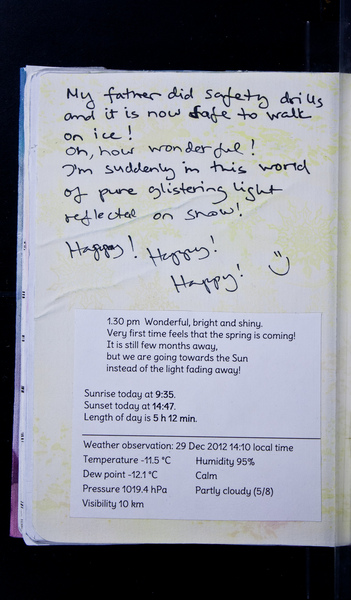 My father did safety drills
and it is now safe to walk
on ice!
Oh, how wonderful!
I'm suddenly in this world
of pure glistering light
reflected on snow!
Happy! Happy!
Happy! :)
1.30 pm Wonderful, bright and shiny.
Very first time feels that the spring is coming!
It is still few months away,
but we are going towards the Sun
instead of the light fading away!
Sunrise today at 9:35.
Sunset today at 14:47.
Length of day is 5 h 12 min.
Weather observation: 29 Dec 2012 14:10 local time
Temperature -11.5 °C Humidity 95%
Dew point -12.1 °C Calm
Pressure 1019.4 hPa Partly cloudy (5/8)
Visibility 10 km